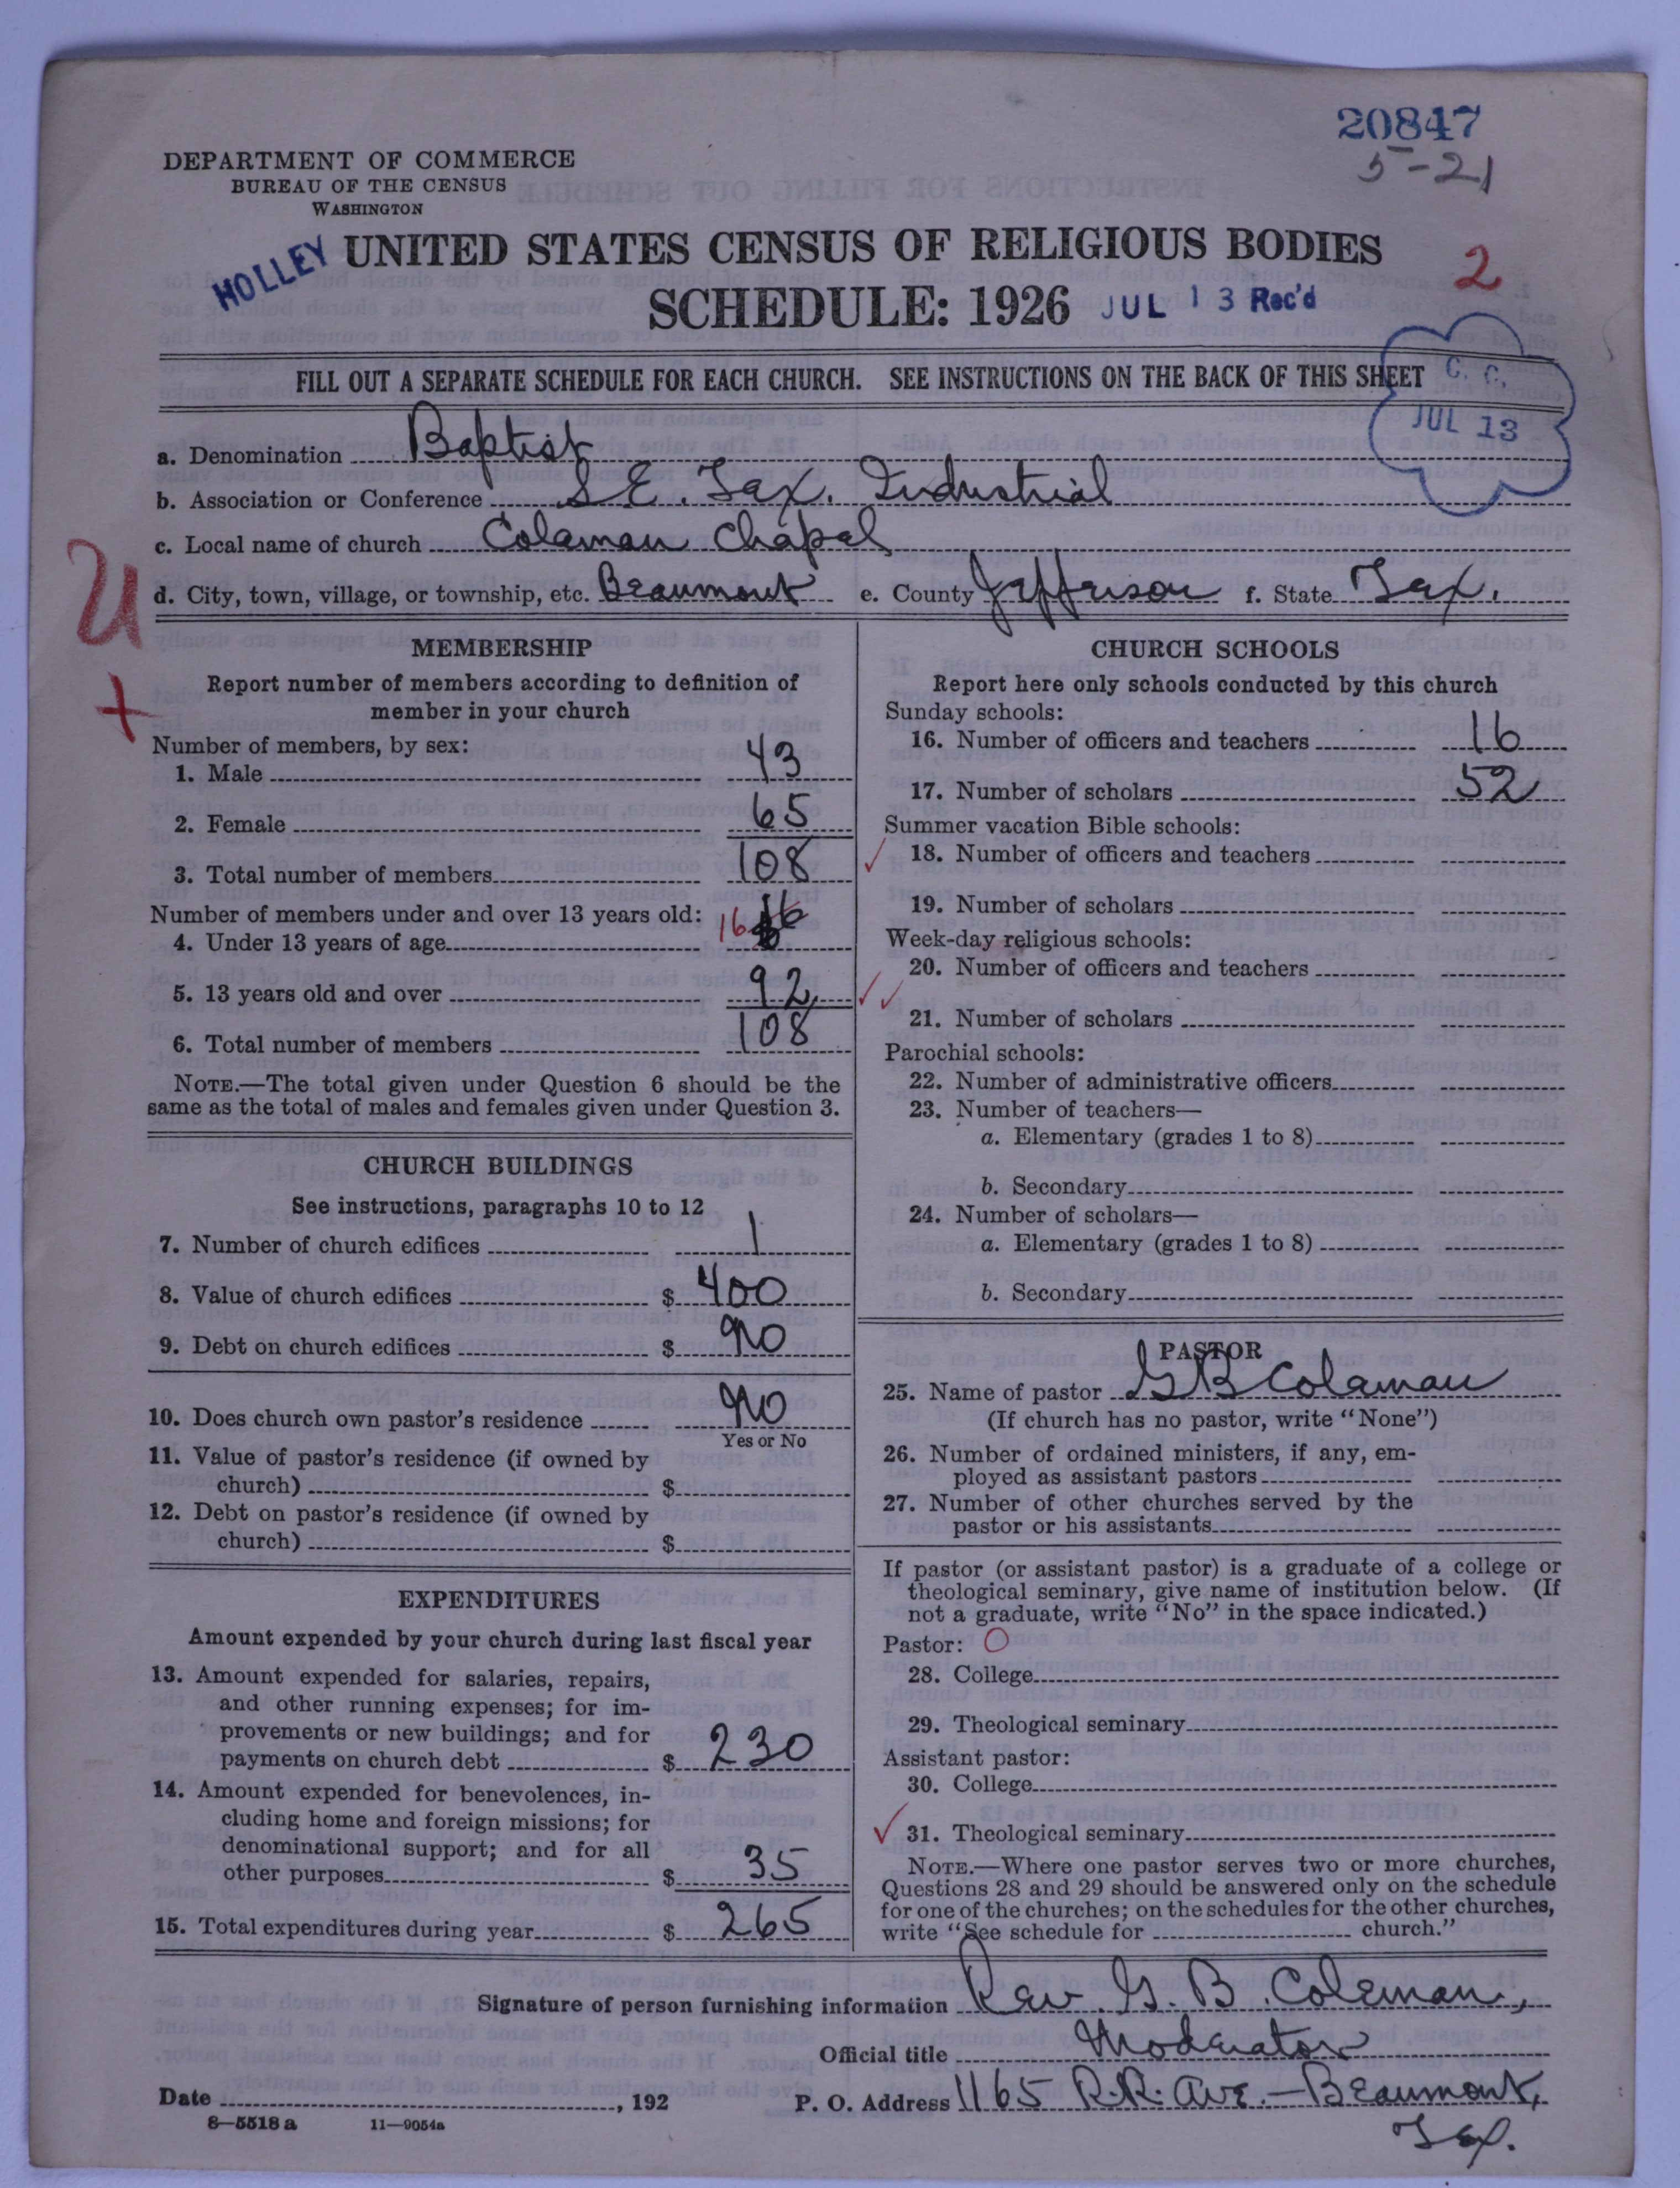 20847
5-21
DEPARTMENT OF COMMERCE
BUREAU OF THE CENSUS
WASHINGTON
HOLLEY
UNITED STATES CENSUS OF RELIGIOUS BODIES
2
SCHEDULE: 1926 JUL 13 Rec'd
FILL OUT A SEPARATE SCHEDULE FOR EACH CHURCH. SEE INSTRUCTIONS ON THE BACK OF THIS SHEET
C. C.
JUL 13
a. Denomination Baptist
b. Association or Conference S.E. Tex. Industrial
c. Local name of church Colaman Chapel
d. City, town, village, or township, etc. Beaumont e. County Jefferson f. State Tex.
U
+
MEMBERSHIP
Report number of members according to definition of
member in your church
Number of members, by sex:
1. Male 43
2. Female 65
3. Total number of members 108
Number of members under and over 13 years old:
4. Under 13 years of age 16 16
5. 13 years old and over 92
6. Total number of members 108
NOTE.—The total given under Question 6 should be the
same as the total of males and females given under Question 3.
CHURCH BUILDINGS
See instructions, paragraphs 10 to 12
7. Number of church edifices 1
8. Value of church edifices $ 400
9. Debt on church edifices $ NO
10. Does church own pastor's residence NO
Yes or No
11. Value of pastor's residence (if owned by
church) $
12. Debt on pastor's residence (if owned by
church) $
EXPENDITURES
Amount expended by your church during last fiscal year
13. Amount expended for salaries, repairs,
and other running expenses; for im-
provements or new buildings; and for
payments on church debt $ 230
14. Amount expended for benevolences, in-
cluding home and foreign missions; for
denominational support; and for all
other purposes $ 35
15. Total expenditures during year $ 265
CHURCH SCHOOLS
Report here only schools conducted by this church
Sunday schools:
16. Number of officers and teachers 16
17. Number of scholars 52
Summer vacation Bible schools:
18. Number of officers and teachers
19. Number of scholars
Week-day religious schools:
20. Number of officers and teachers
21. Number of scholars
Parochial schools:
22. Number of administrative officers
23. Number of teachers—
a. Elementary (grades 1 to 8)
b. Secondary
24. Number of scholars—
a. Elementary (grades 1 to 8)
b. Secondary
PASTOR
25. Name of pastor G B Colaman
(If church has no pastor, write "None")
26. Number of ordained ministers, if any, em-
ployed as assistant pastors
27. Number of other churches served by the
pastor or his assistants
If pastor (or assistant pastor) is a graduate of a college or
theological seminary, give name of institution below. (If
not a graduate, write "No" in the space indicated.)
Pastor: O
28. College
29. Theological seminary
Assistant pastor:
30. College
31. Theological seminary
NOTE.—Where one pastor serves two or more churches,
Questions 28 and 29 should be answered only on the schedule
for one of the churches; on the schedules for the other churches,
write "See schedule for church."
Signature of person furnishing information Rev. G. B. Coleman,
Official title Moderator
Date , 192 P. O. Address 1165 R.R. Ave.—Beaumont,
Tex.
8—5518 a 11—9054a